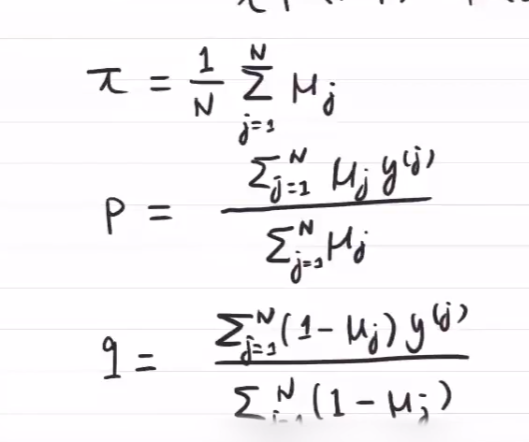 π = 1/N Σ_{j=1}^{N} μ_j
p = Σ_{j=1}^{N} μ_j y^{(j)} / Σ_{j=1}^{N} μ_j
q = Σ_{j=1}^{N} (1 - μ_j) y^{(j)} / Σ^{N} (1 - μ_j)